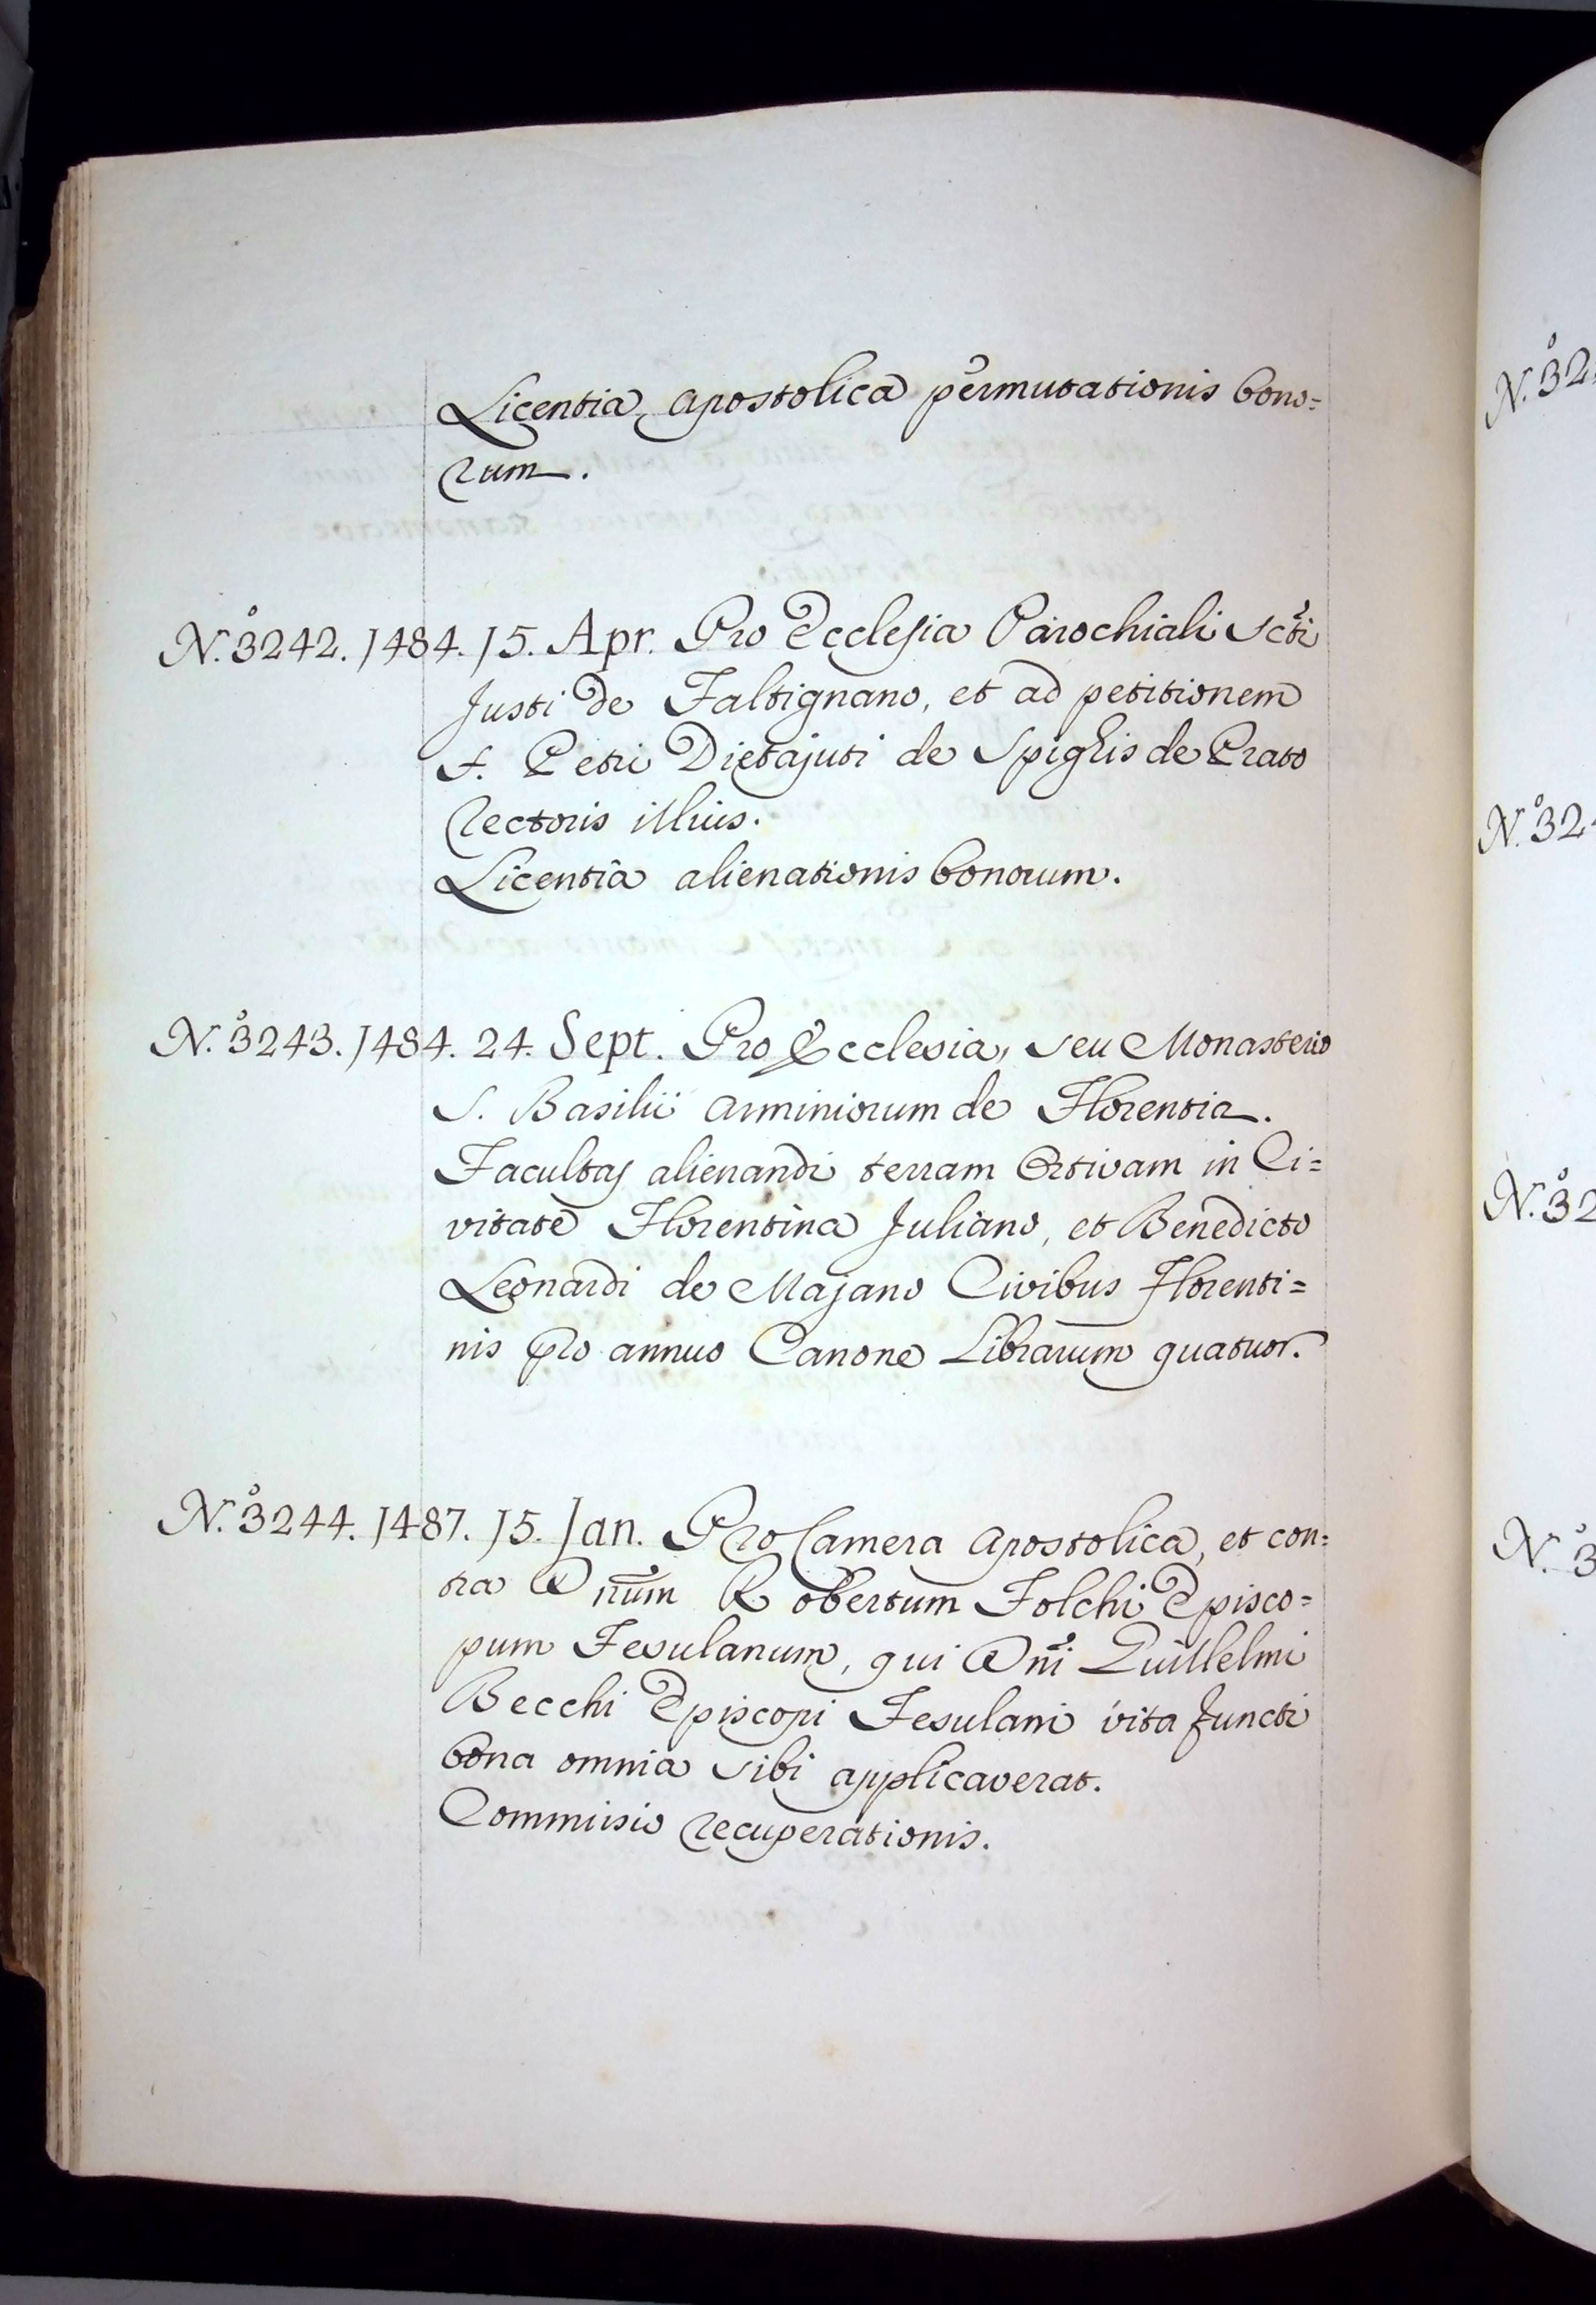 Licentia Apostolica permutationis bono=
rum.
N.º 3242. 1484. 15. Apr. Pro Ecclesia Parochiali Scti
Justi de Faltignano, et ad petitionem
f. Petri Dietajuti de Spighis de Prato
Rectoris illius.
Licentia alienationis bonorum.
N.º 3243. 1484. 24. Sept. Pro Ecclesia, seu Monasterio
S. Basilii Arminiorum de Florentia.
Facultas alienandi terram Ortivam in Ci=
vitate Florentina Juliano, et Benedicto
Leonardi de Majano Civibus Florenti=
nis pro annuo Canone Librarum quatuor.
N.º 3244. 1487. 15. Jan. Pro Camera Apostolica, et con=
tra Dnum Robertum Folchi Episco=
pum Fesulanum, qui Dni Guillelmi
Becchi Episcopi Fesulani vita functi
bona omnia sibi applicaverat.
Commisio recuperationis.
N.º 32
N.º 32
N.º 32
N.º 3